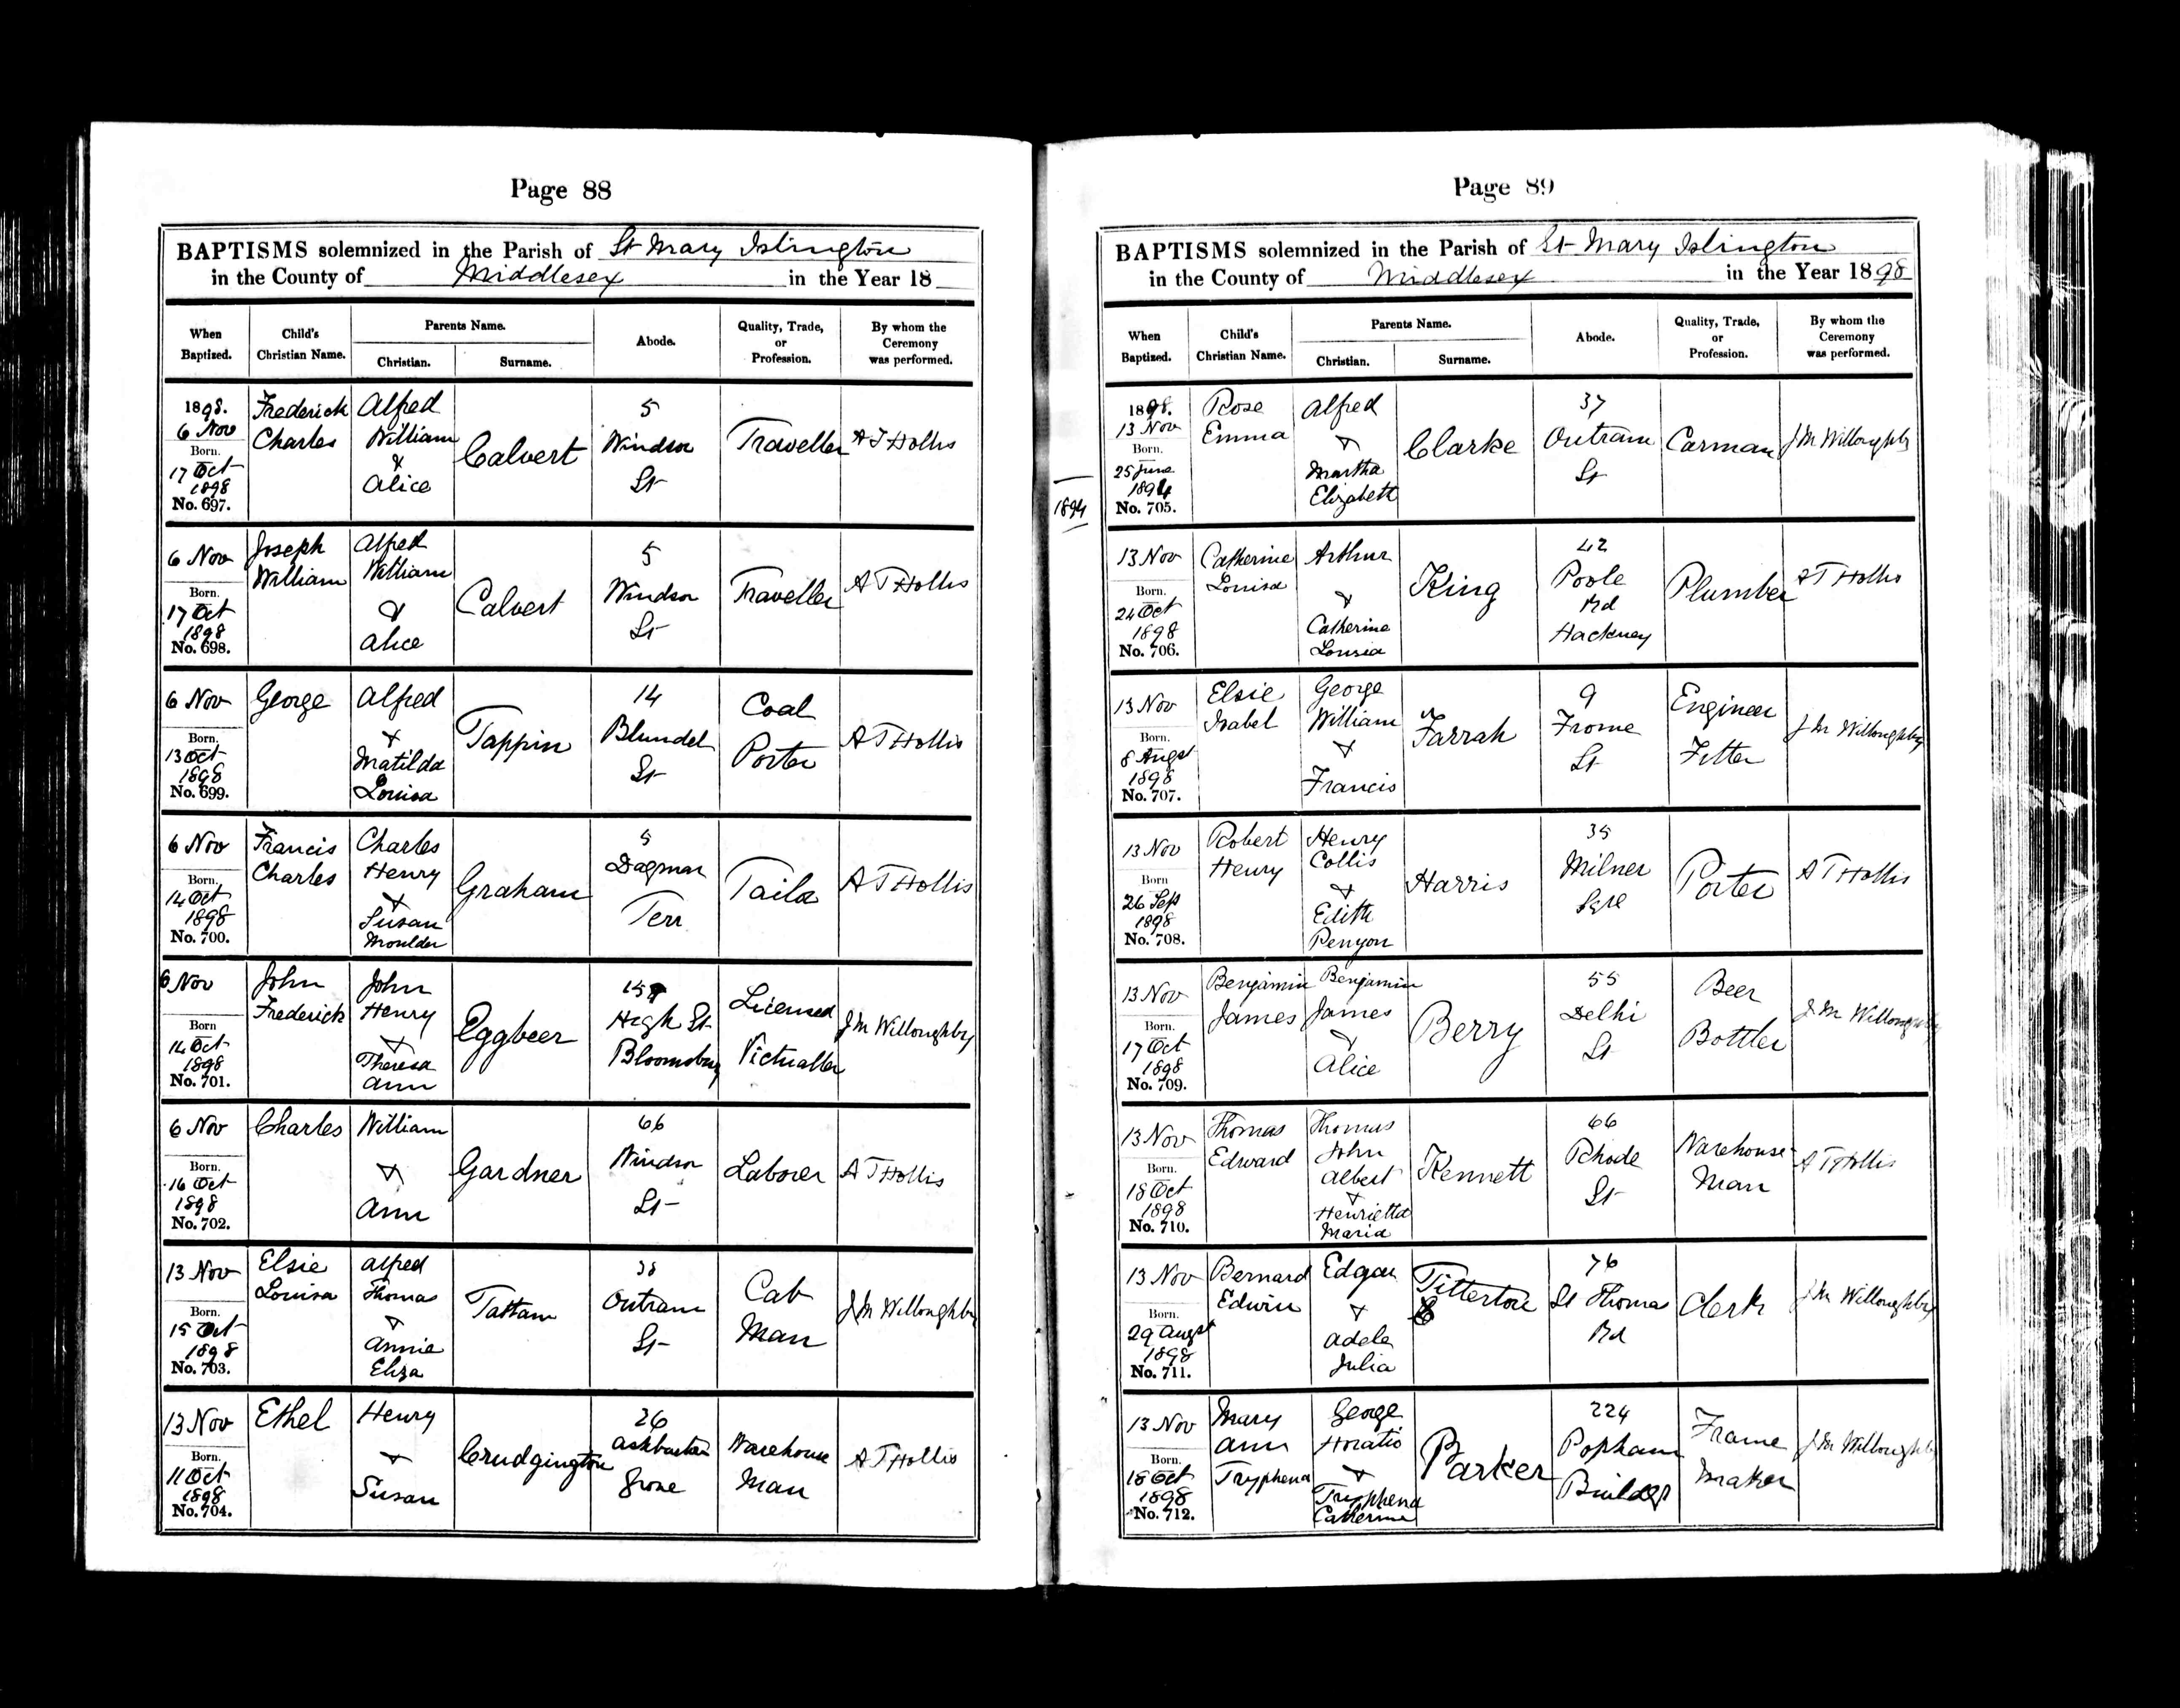 Page 88
BAPTISMS solemnized in the Parish of St Mary Islington
in the County of Middlesex in the Year 18
When Baptized.
Child's Christian Name.
Parents Name.
Christian.
Surname.
Abode.
Quality, Trade, or Profession.
By whom the Ceremony was performed.
1898. 6 Nov Born. 17 Oct 1898 No. 697.
Frederick Charles
Alfred William & Alice
Calvert
5 Windsor St
Traveller
A T Hollis
6 Nov Born. 17 Oct 1898 No. 698.
Joseph William
Alfred William & Alice
Calvert
5 Windsor St
Traveller
A T Hollis
6 Nov Born. 13 Oct 1898 No. 699.
George
Alfred & Matilda Louisa
Tappin
14 Blundel St
Coal Porter
A T Hollis
6 Nov Born. 14 Oct 1898 No. 700.
Francis Charles
Charles Henry & Susan Moulder
Graham
5 Dagmar Terr
Tailor
A T Hollis
6 Nov Born 14 Oct 1898 No. 701.
John Frederick
John Henry & Theresa Ann
Eggbeer
High St Bloomsbury
Licensed Victualler
J M Willoughby
6 Nov Born. 16 Oct 1898 No. 702.
Charles
William & Ann
Gardner
66 Windsor St
Laborer
A T Hollis
13 Nov Born. 15 Oct 1898 No. 703.
Elsie Louisa
Alfred Thomas & Annie Eliza
Tattam
38 Outram St
Cab Man
J M Willoughby
13 Nov Born. 11 Oct 1898 No. 704.
Ethel
Henry & Susan
Crudgington
26 Ashburton Grove
Warehouse Man
A T Hollis
Page 89
BAPTISMS solemnized in the Parish of St Mary Islington
in the County of Middlesex in the Year 1898
When Baptized.
Child's Christian Name.
Parents Name.
Christian.
Surname.
Abode.
Quality, Trade, or Profession.
By whom the Ceremony was performed.
1894
1898. 13 Nov Born. 25 June 1894 No. 705.
Rose Emma
Alfred & Martha Elizabeth
Clarke
37 Outram St
Carman
J M Willoughby
13 Nov Born. 24 Oct 1898 No. 706.
Catherine Louisa
Arthur & Catherine Louisa
King
42 Poole Rd Hackney
Plumber
A T Hollis
13 Nov Born. 8 Augst 1898 No. 707.
Elsie Isabel
George William & Francis
Farrah
9 Frome St
Engineer Fitter
J M Willoughby
13 Nov Born 26 Sep 1898 No. 708.
Robert Henry
Henry Collis & Edith Penyon
Harris
35 Milner Sqre
Porter
A T Hollis
13 Nov Born. 17 Oct 1898 No. 709.
Benjamin James
Benjamin James & Alice
Berry
55 Delhi St
Beer Bottler
J M Willoughby
13 Nov Born. 18 Oct 1898 No. 710.
Thomas Edward
Thomas John Albert & Henrietta Maria
Kennett
66 Rhode St
Warehouse Man
A T Hollis
13 Nov Born. 29 Augst 1898 No. 711.
Bernard Edwin
Edgar & Adela Julia
Titterton
76 St Thomas Rd
Clerk
J M Willoughby
13 Nov Born. 18 Oct 1898 No. 712.
Mary Ann Tryphena
George Horatio & Tryphena Catherine
Parker
224 Popham Buildgs
Frame Maker
J M Willoughby